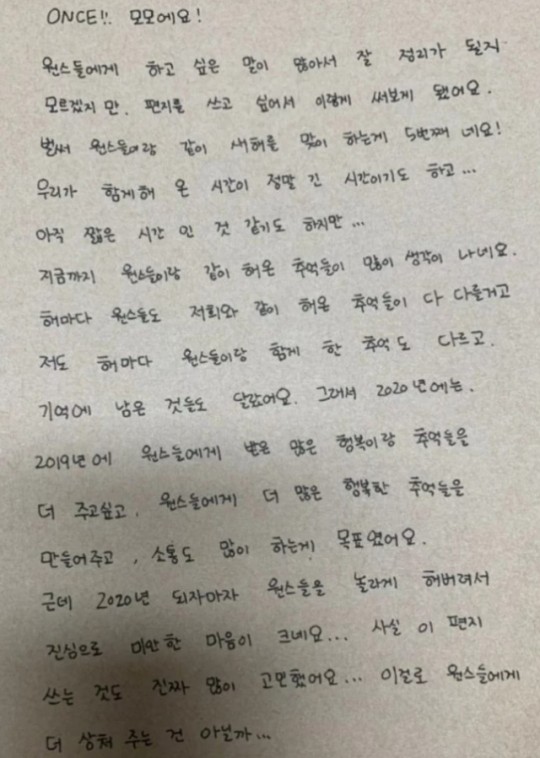 ONCE!! 모모에요!
원스들에게 하고 싶은 말이 많아서 잘 정리가 될지
모르겠지 만. 편지를 쓰고 싶어서 이렇게 써보게 됐어요.
벌써 원스들이랑 같이 새해를 맞이 하는게 5번째 네요!
우리가 함게해 온 시간이 정말 긴 시간이기도 하고...
아직 짧은 시간 인 것 같기도 하지만...
지금까지 원스들이랑 같이 해온 추억들이 많이 생각이 나네요.
해마다 원스들도 저희와 같이 해온 추억들이 다 다를거고
저도 해마다 원스들이랑 함게 한 추억도 다르고.
기억에 남은 것들도 달랐어요. 그래서 2020년에는.
2019년에 원스들에게 받은 많은 행복이랑 추억들을
더 주고싶고, 원스들에게 더 많은 행복한 추억들을
만들어주고, 소통도 많이 하는게 목표였어요.
근데 2020년 되자마자 원스들을 놀라게 해버려서
진심으로 미안한 마음이 크네요... 사실 이 편지
쓰는 것도 진짜 많이 고민했어요... 이걸로 원스들에게
더 상처 주는 건 아닐까...